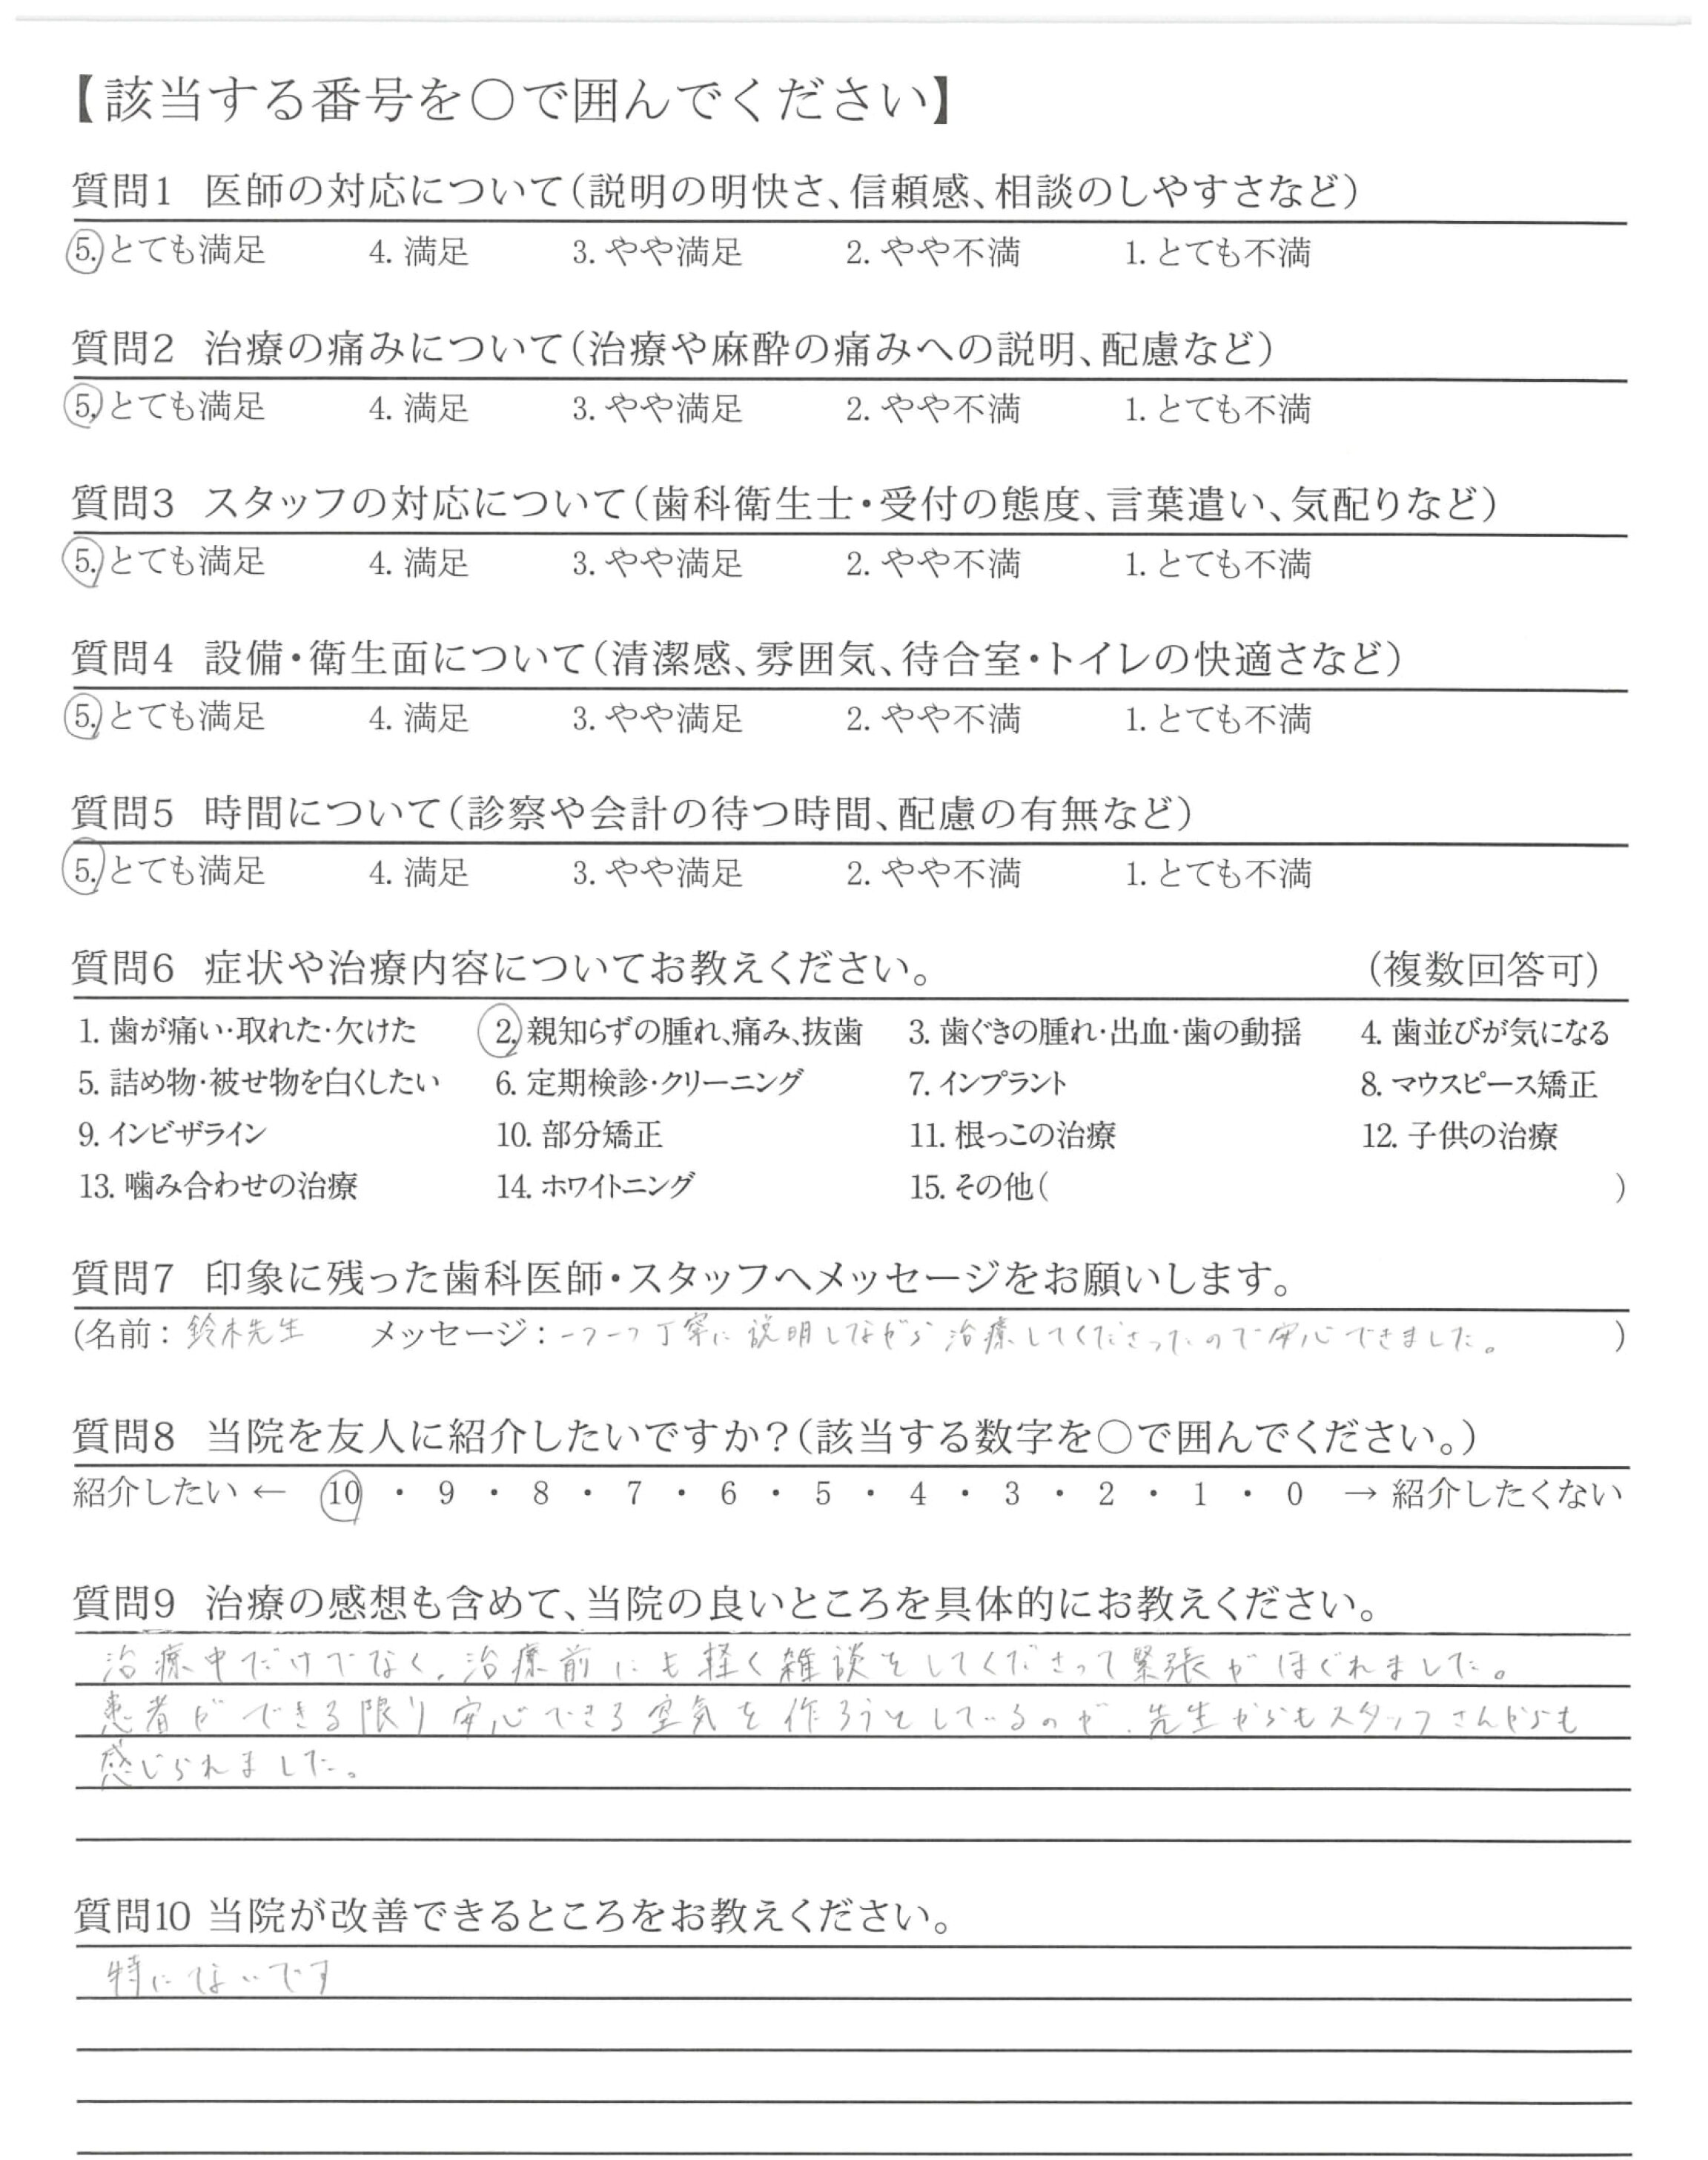 【該当する番号を○で囲んでください】
質問1 医師の対応について(説明の明快さ、信頼感、相談のしやすさなど)
5. とても満足 4. 満足 3. やや満足 2. やや不満 1. とても不満
質問2 治療の痛みについて(治療や麻酔の痛みへの説明、配慮など)
5. とても満足 4. 満足 3. やや満足 2. やや不満 1. とても不満
質問3 スタッフの対応について(歯科衛生士・受付の態度、言葉遣い、気配りなど)
5. とても満足 4. 満足 3. やや満足 2. やや不満 1. とても不満
質問4 設備・衛生面について(清潔感、雰囲気、待合室・トイレの快適さなど)
5. とても満足 4. 満足 3. やや満足 2. やや不満 1. とても不満
質問5 時間について(診察や会計の待つ時間、配慮の有無など)
5. とても満足 4. 満足 3. やや満足 2. やや不満 1. とても不満
質問6 症状や治療内容についてお教えください。 (複数回答可)
1. 歯が痛い・取れた・欠けた 2. 親知らずの腫れ、痛み、抜歯 3. 歯ぐきの腫れ・出血・歯の動揺 4. 歯並びが気になる
5. 詰め物・被せ物を白くしたい 6. 定期検診・クリーニング 7. インプラント 8. マウスピース矯正
9. インビザライン 10. 部分矯正 11. 根っこの治療 12. 子供の治療
13. 噛み合わせの治療 14. ホワイトニング 15. その他( )
質問7 印象に残った歯科医師・スタッフへメッセージをお願いします。
(名前：鈴木先生 メッセージ：一つ一つ丁寧に説明しながら治療してくださったので安心できました。 )
質問8 当院を友人に紹介したいですか?(該当する数字を○で囲んでください。)
紹介したい ← 10 ・ 9 ・ 8 ・ 7 ・ 6 ・ 5 ・ 4 ・ 3 ・ 2 ・ 1 ・ 0 → 紹介したくない
質問9 治療の感想も含めて、当院の良いところを具体的にお教えください。
治療中だけでなく、治療前にも軽く雑談をしてくださって緊張がほぐれました。
患者ができる限り安心できる空気を作ろうとしているのが、先生からもスタッフさんからも
感じられました。
質問10 当院が改善できるところをお教えください。
特にないです